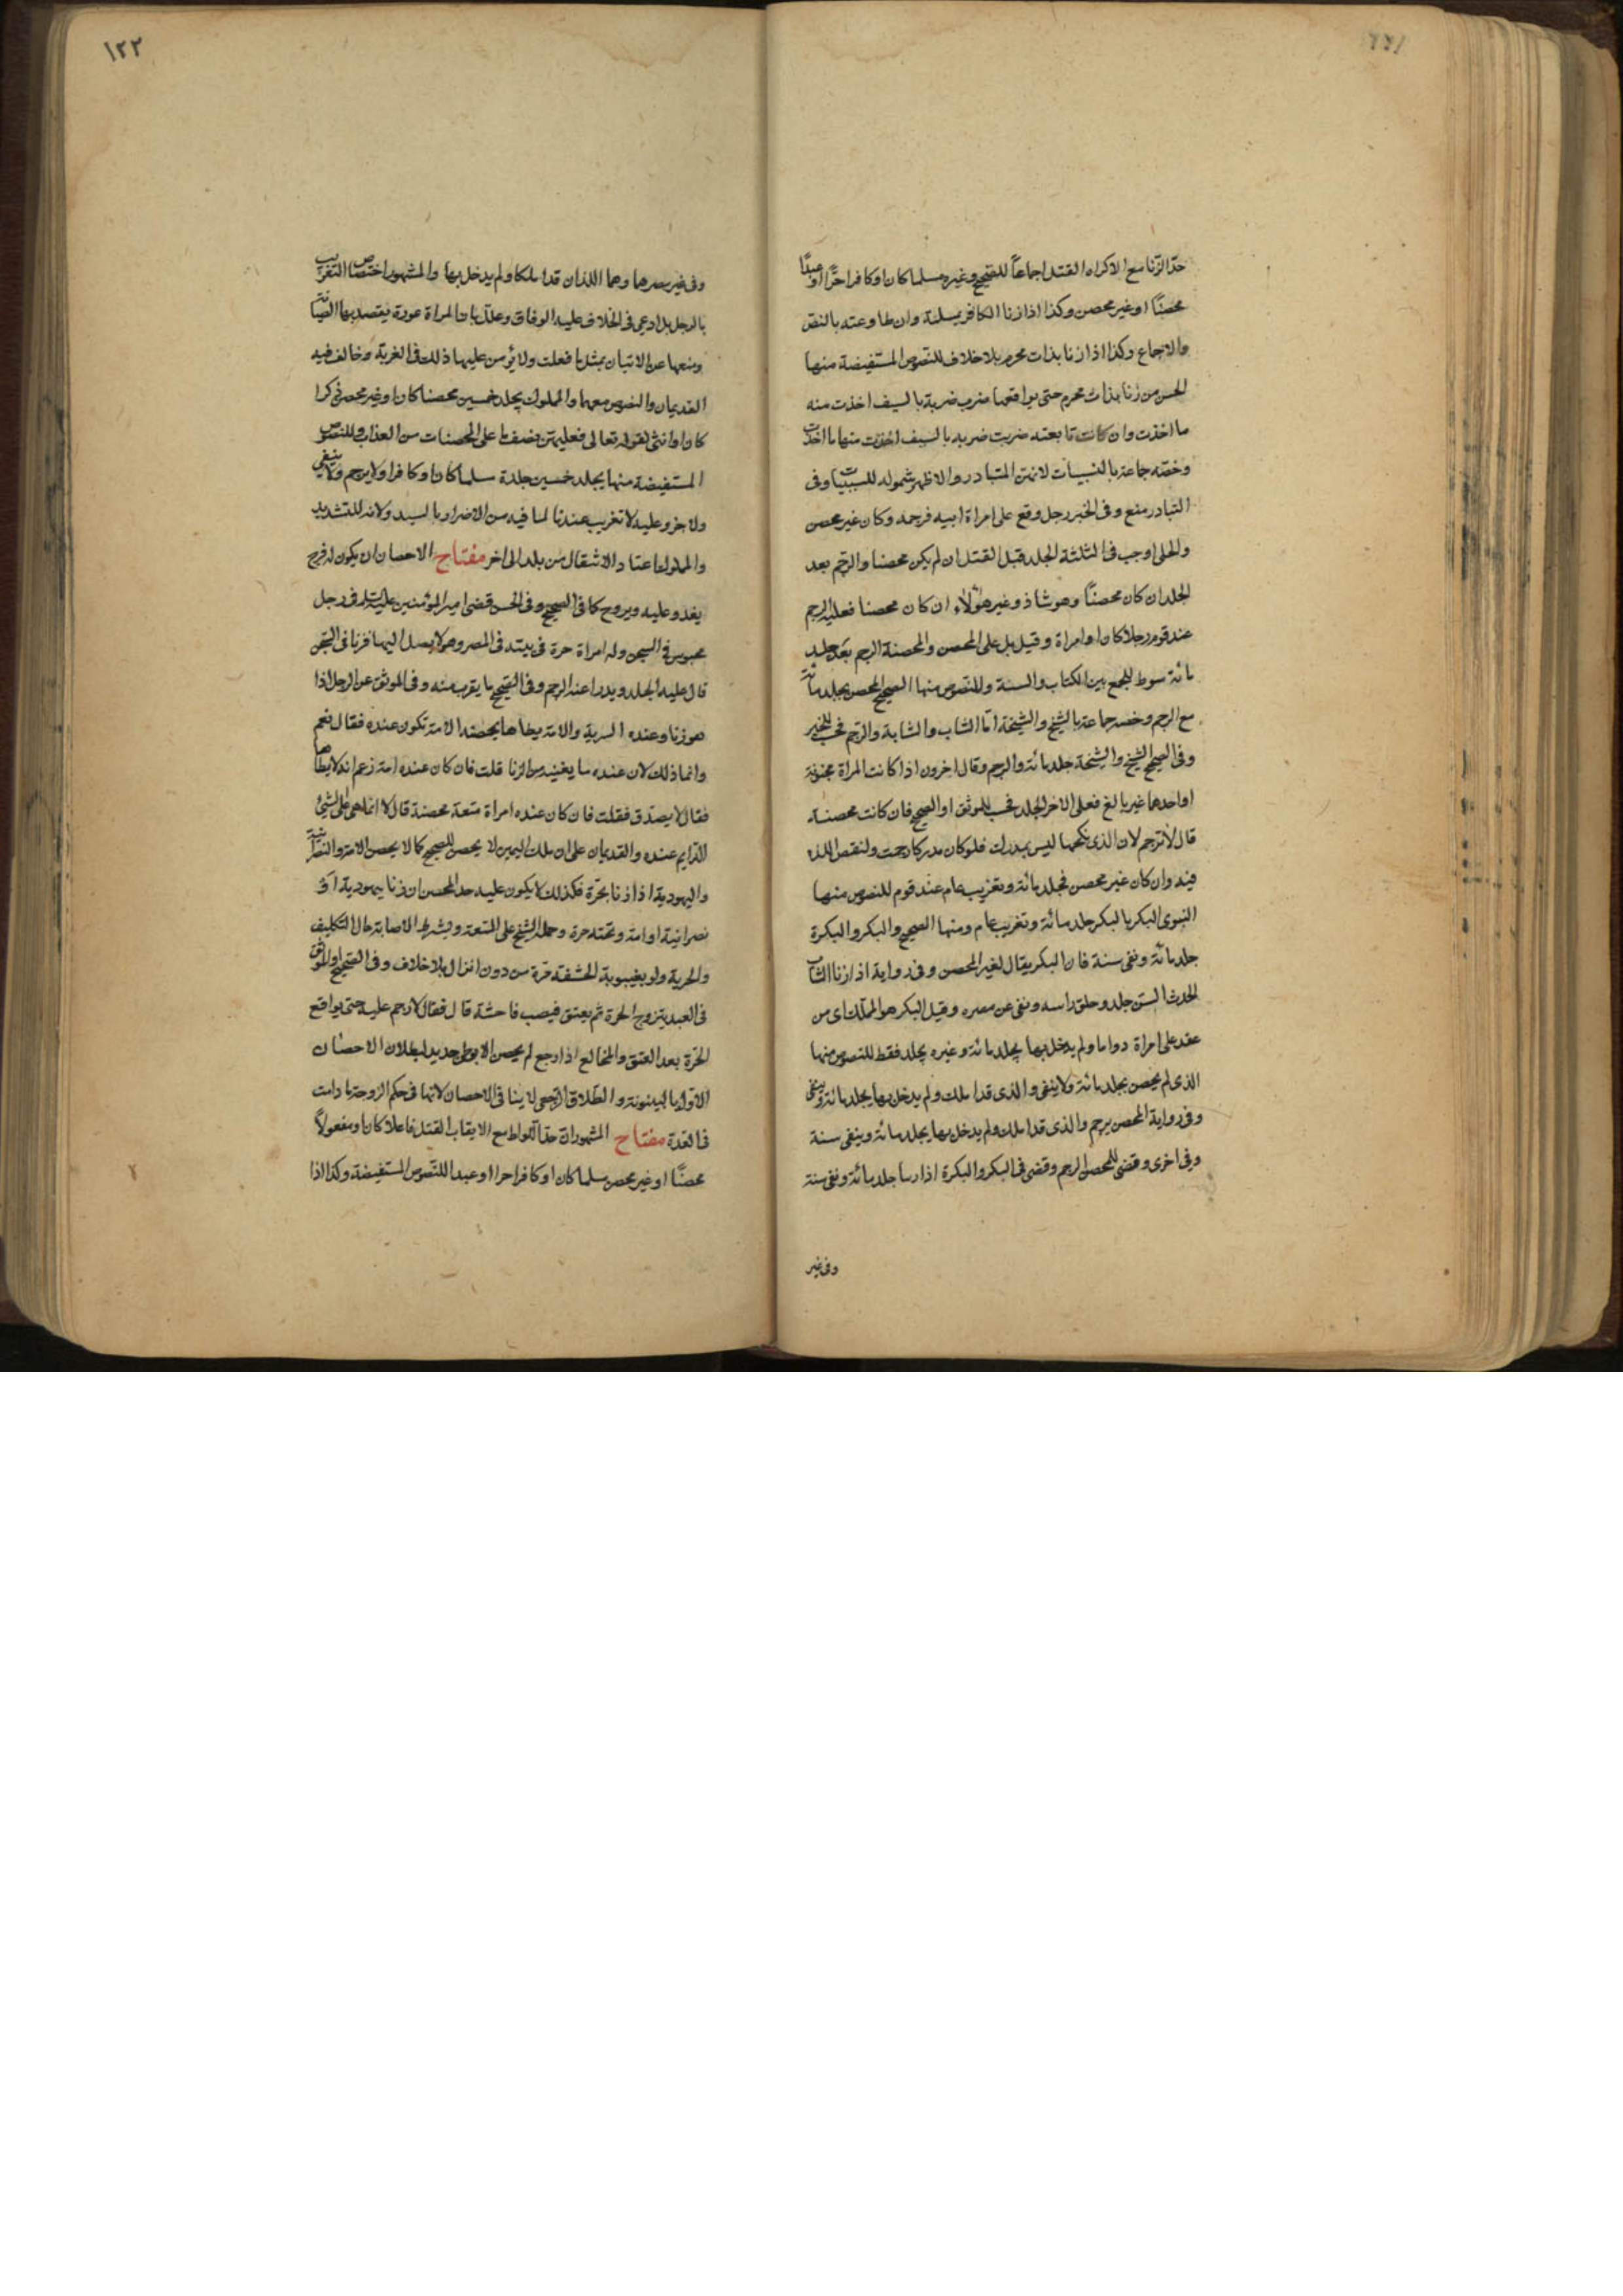 ١٢١
حدّ الزّنا مع الاكراه القتل اجماعاً للصّحيح وغيره مسلما كان او كافرا حرًّا او عبدًا
محصنًا او غير محصن وكذا اذا زنا الكافر بمسلمة وان طاوعته بالنصّ
والاجماع وكذا اذا زنا بذات محرم بلا خلاف للنصوص المستفيضة منها
الحسن من زنا بذات محرم حتى يواقعها ضرب ضربة بالسيف اخذت منه
ما اخذت وان كانت تابعته ضربت ضربة بالسيف اخذت منها ما اخذت
وخصّه جماعة بالنسبيات لانهنّ المتبادر والاظهر شموله للسببيات وفى
التبادر منع وفى الخبر رجل وقع على امراة ابيه فرجمه وكان غير محصن
والحلى اوجب فى الثلثة الجلد قبل القتل ان لم يكن محصنا والرّجم بعد
الجلد ان كان محصنًا وهو شاذ وغير هؤلاء ان كان محصنا فعليه الرجم
عند قوم رجلا كان او امراة وقيل بل على المحصن والمحصنة الرجم بعد جلد
مائة سوط للجمع بين الكتاب والسنة وللنصوص منها الصحيح المحصن يجلد مائة
مع الرجم وخصه جماعة بالشيخ والشيخة امّا الشاب والشابة والرّجم فحسب للخبر
وفى الصحيح الشيخ والشيخة جلد مائة والرجم وقال اخرون اذا كانت المراة مجنونة
او احدهما غير بالغ فعلى الاخر الجلد فحسب للموثق او الصحيح فان كانت محصنة
قال لا ترجم لان الذى نكحها ليس بمدرك فلو كان مدركا رجمت ولنقص اللذة
فيه وان كان غير محصن فجلد مائة وتغريب عام عند قوم للنصوص منها
النبوى البكر بالبكر جلد مائة وتغريب عام ومنها الصحيح والبكر والبكرة
جلد مائة ونفى سنة فان البكر يقال لغير المحصن وفى رواية اذا زنا الشاب
الحدث السن جلد وحلق راسه ونفى عن مصره وقيل البكر هو المملك اى من
عقد على امراة دواما ولم يدخل بها يجلد مائة وغيره يجلد فقط للنصوص منها
الذى لم يحصن يجلد مائة ولا ينفى والذى قد املك ولم يدخل بها يجلد مائة وينفى
وفى رواية المحصن يرجم والذى قد املك ولم يدخل بها يجلد مائة وينفى سنة
وفى اخرى وقضى للمحصن الرجم وقضى فى البكر والبكرة اذا زنيا جلد مائة ونفى سنة
وفى غير
١٢٢
وفى غير مصرهما وهما اللذان قد املكا ولم يدخل بها والمشهور اختصاص التغريب
بالرجل بل ادعى فى الخلاف عليه الوفاق وعلّل بان المراة عورة يقصد بها الصيانة
ومنعها عن الاتيان بمثل ما فعلت ولا يؤمن عليها ذلك فى الغربة وخالف فيه
القديمان والنصوص معهما والمملوك يجلد خمسين محصنا كان او غير محصن ذكرا
كان او انثى لقوله تعالى فعليهنّ نصف ما على المحصنات من العذاب وللنصوص
المستفيضة منها يجلد خمسين جلدة مسلما كان او كافرا ولا يرجم ولا ينفى
ولا جز وعليه لا تغريب عندنا لما فيه من الاضرار بالسيد ولانه للتشديد
والمملوك اعتاد الانتقال من بلد الى اخر مفتاح الاحصان ان يكون له فرج
يغدو عليه ويروح كما فى الصحيح وفى الحسن قضى امير المؤمنين عليه السلم فى رجل
محبوس فى السجن وله امراة حرة فى بيته فى المصر وهو لا يصل اليها فزنا فى السّجن
قال عليه الجلد ويدرا عنه الرجم وفى الصّحيح ما يقرب منه وفى الموثق عن الرجل اذا
هو زنا وعنده السرية والامة يطاها يحصنه الامة تكون عنده فقال نعم
وانما ذلك لان عنده ما يغنيه من الزنا قلت فان كان عنده امة زعم انه لا يطاها
فقال لا يصدّق فقلت فان كان عنده امراة متعة محصنة قال لا انما هى على الشئ
الدّايم عنده والقديمان على ان ملك اليمين لا يحصن للصحيح كما لا يحصن الامة والنصرانية
واليهودية اذا زنا بحرّة فكذلك لا يكون عليه حد المحصن ان زنا بيهودية او
نصرانية او امة وتحته حرة وحمله الشيخ على المتعة ويشترط الاصابة حال التكليف
والحرية ولو بغيبوبة الحشفة مرّة من دون انزال بلا خلاف وفى الصحيح او الموثق
فى العبد يتزوج الحرة ثم يعتق فيصيب فاحشة قال فقال لا رجم عليه حتى يواقع
الحرّة بعد العتق والمخالع اذا رجع لم يحصن الا بوطى جديد لبطلان الاحصان
الاوّل بالبينونة والطلاق الرّجعى لا ينافى الاحصان لانها فى حكم الزوجة ما دامت
فى العدة مفتاح المشهور انّ حدّ اللواط مع الايقاب القتل فاعلا كان او مفعولاً
محصنًا او غير محصن مسلما كان او كافرا حرا او عبدا للنّصوص المستفيضة وكذا اذا